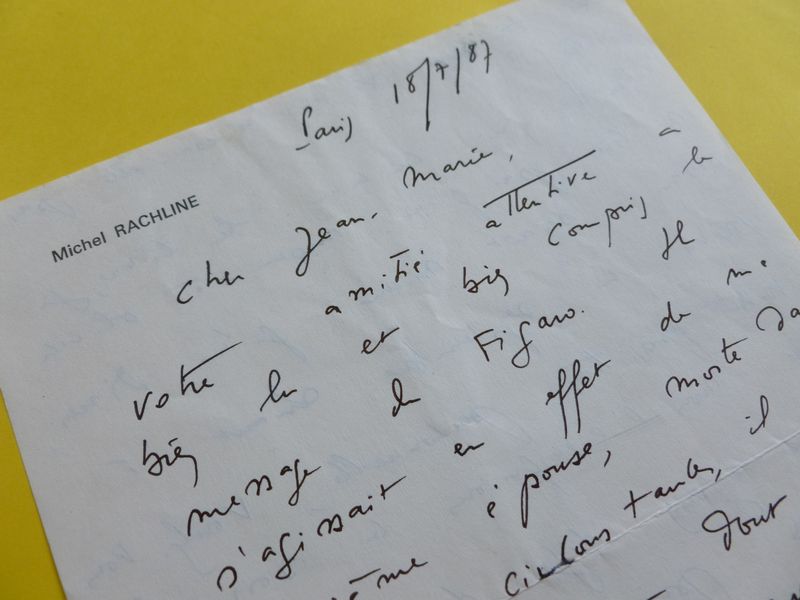 Paris 18/7/87
Michel RACHLINE
Cher Jean-Marie,
votre amitié attentive a
bien lu et bien compris le
message du Figaro. Il
s'agissait en effet de ma
épouse, morte da
circonstances, il
dont